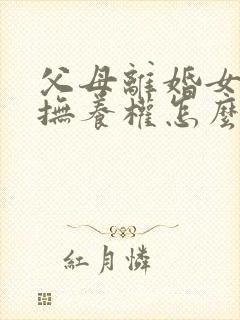 父母離婚女
撫養權怎麼
紅月憐